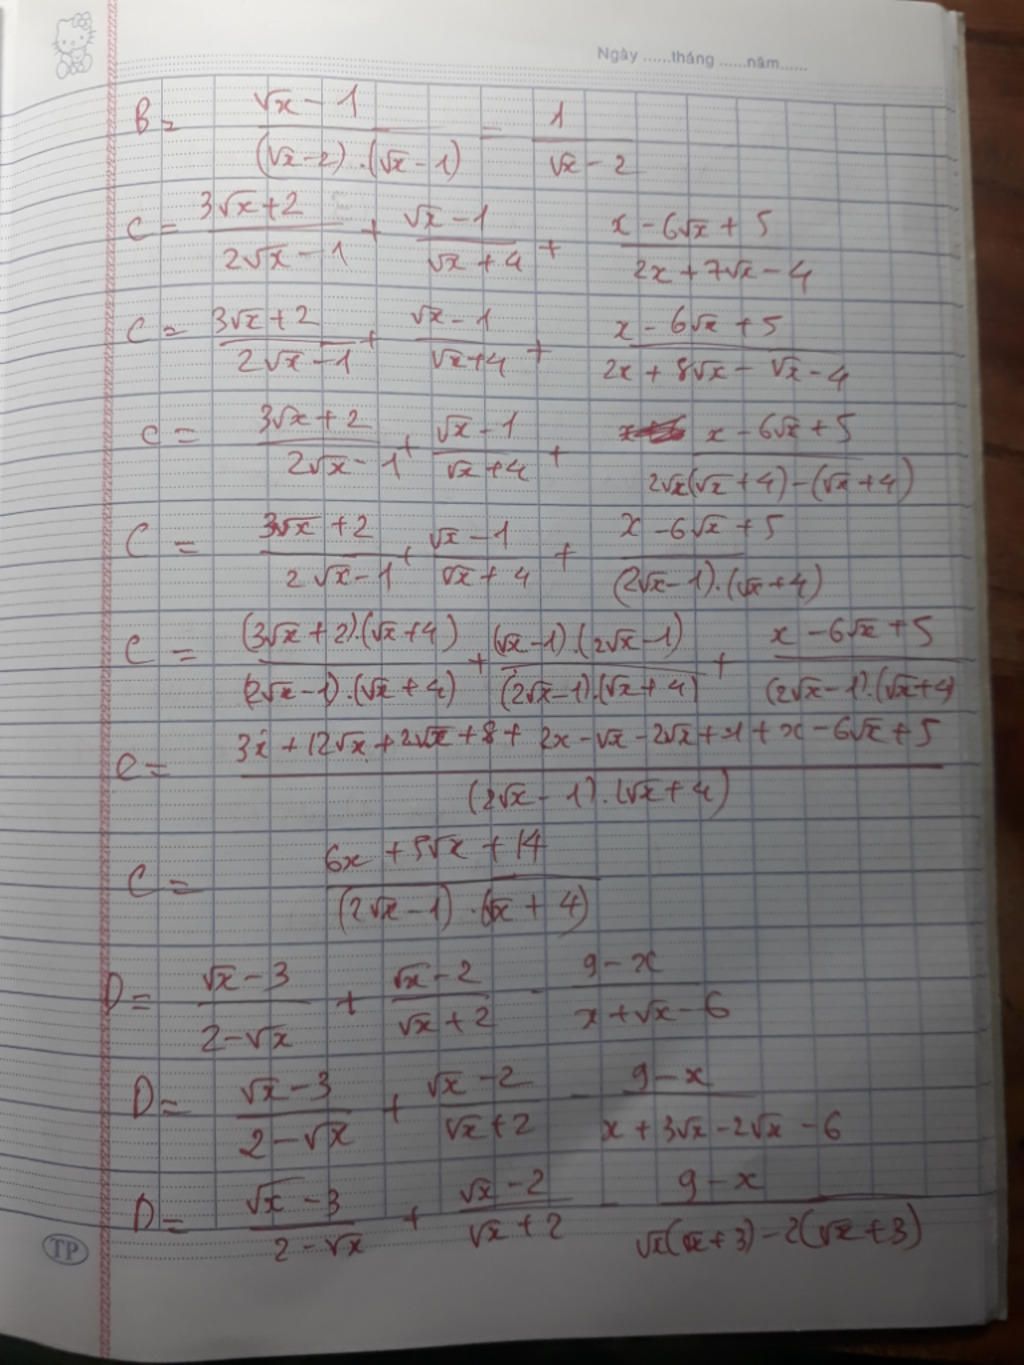 Ngày ......tháng ......năm......
B = (√x - 1)/((√x - 2).(√x - 1)) - 1/(√x - 2)
C = (3√x + 2)/(2√x - 1) + (√x - 1)/(√x + 4) + (x - 6√x + 5)/(2x + 7√x - 4)
C = (3√x + 2)/(2√x - 1) + (√x - 1)/(√x + 4) + (x - 6√x + 5)/(2x + 8√x - √x - 4)
C = (3√x + 2)/(2√x - 1) + (√x - 1)/(√x + 4) + (x - 6√x + 5)/(2√x(√x + 4) - (√x + 4))
C = (3√x + 2)/(2√x - 1) + (√x - 1)/(√x + 4) + (x - 6√x + 5)/((2√x - 1).(√x + 4))
C = ((3√x + 2).(√x + 4))/((2√x - 1).(√x + 4)) + ((√x - 1).(2√x - 1))/((2√x - 1).(√x + 4)) + (x - 6√x + 5)/((2√x - 1).(√x + 4))
C = (3x + 12√x + 2√x + 8 + 2x - √x - 2√x + 1 + x - 6√x + 5)/((2√x - 1).(√x + 4))
C = (6x + 5√x + 14)/((2√x - 1).(√x + 4))
D = (√x - 3)/(2 - √x) + (√x - 2)/(√x + 2) - (9 - x)/(x + √x - 6)
D = (√x - 3)/(2 - √x) + (√x - 2)/(√x + 2) - (9 - x)/(x + 3√x - 2√x - 6)
D = (√x - 3)/(2 - √x) + (√x - 2)/(√x + 2) - (9 - x)/(√x(√x + 3) - 2(√x + 3))
TP